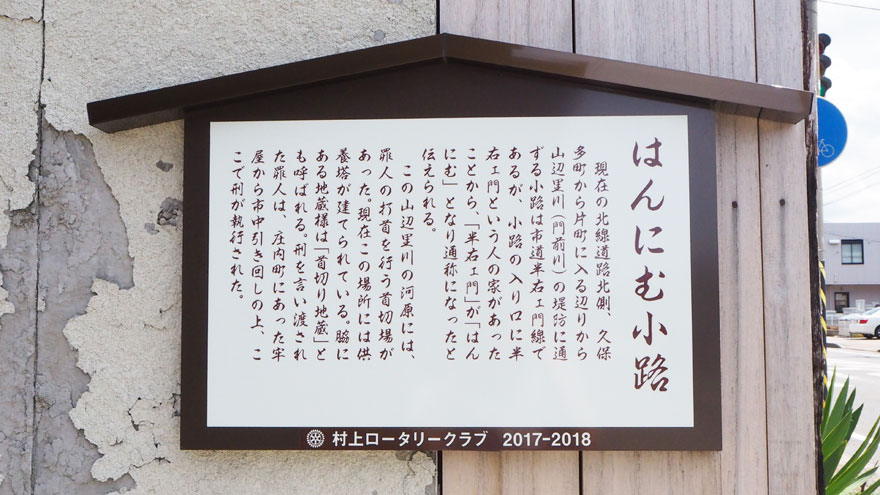 はんにむ小路
現在の北線道路北側、久保
多町から片町に入る辺りから
山辺里川（門前川）の堤防に通
ずる小路は市道半右ェ門線で
あるが、小路の入り口に半
右ェ門という人の家があった
ことから、「半右ェ門」が「はん
にむ」となり通称になったと
伝えられる。
この山辺里川の河原には、
罪人の打首を行う首切場が
あった。現在この場所には供
養塔が建てられている。脇に
ある地蔵様は「首切り地蔵」と
も呼ばれる。刑を言い渡され
た罪人は、庄内町にあった牢
屋から市中引き回しの上、こ
こで刑が執行された。
村上ロータリークラブ 2017-2018